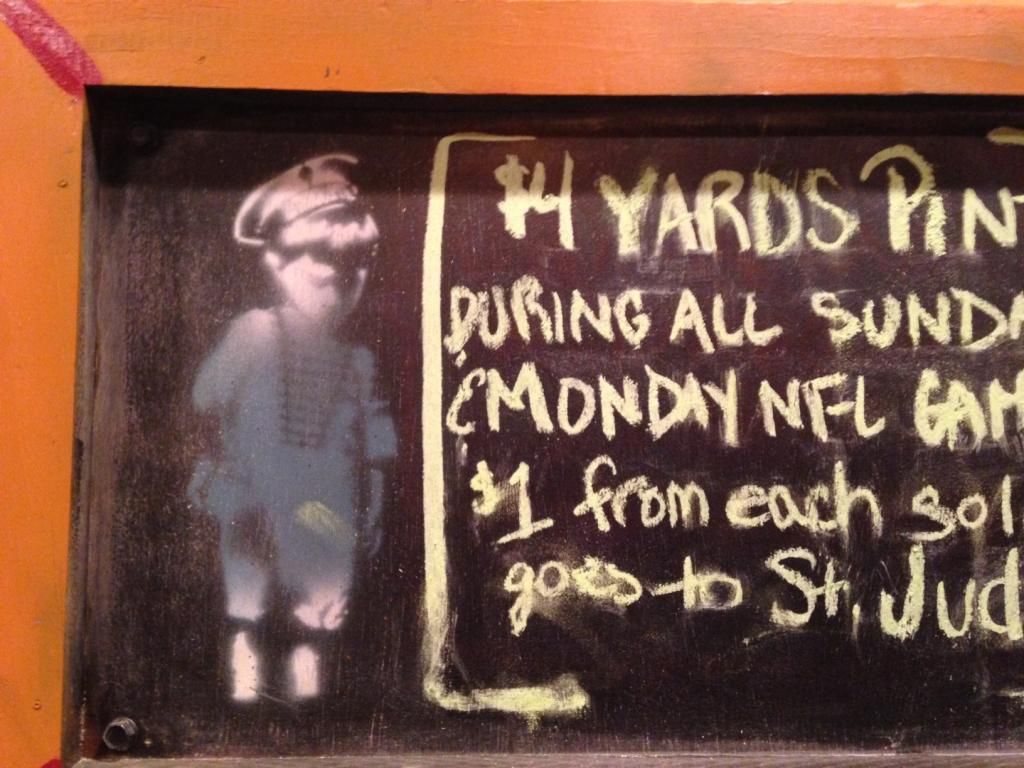 $4 YARDS PIN
DURING ALL SUNDA
& MONDAY NFL GAM
$1 from each sol
goes to St. Jud